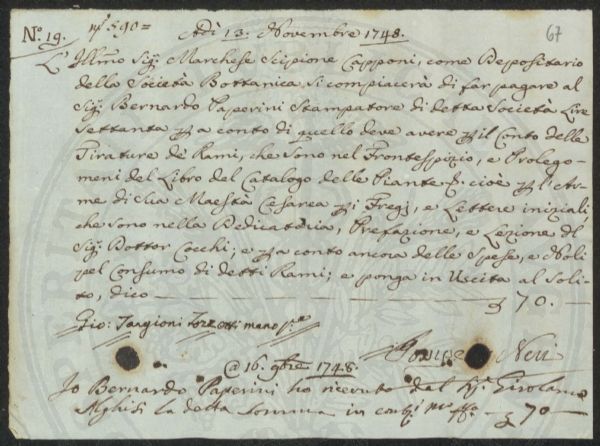 Nº. 19. nº 590= Adì 13. Novembre 1748. 67
L' Illmo Sig. Marchese Scipione Capponi, come Depositario
della Società Bottanica si compiacerà di far pagare al
Sig. Bernardo Paperini Stampatore di detta Società Lire
Settanta p a conto di quello deve avere p il Conto delle
Tirature de' Rami, che sono nel Frontespizio, e Prolego-
meni del Libro del Catalogo delle Piante cioè p l' Ar-
me di Sua Maestà Cesarea p i Fregj, e Lettere iniziali
che sono nella Dedicatoria, Prefazione, e Lezione del
Sig. Dottor Cocchi; e p a conto ancora delle Spese, e Noli
pel Consumo di detti Rami; e ponga in Uscita al Soli-
to, dico — 70. —
Gio: Targioni Tozzetti mano ppa
Neri
@ 16. 9bre 1748.
Io Bernardo Paperini ho ricevuto dal Girolamo
Alghisi la detta Somma in — 70 —